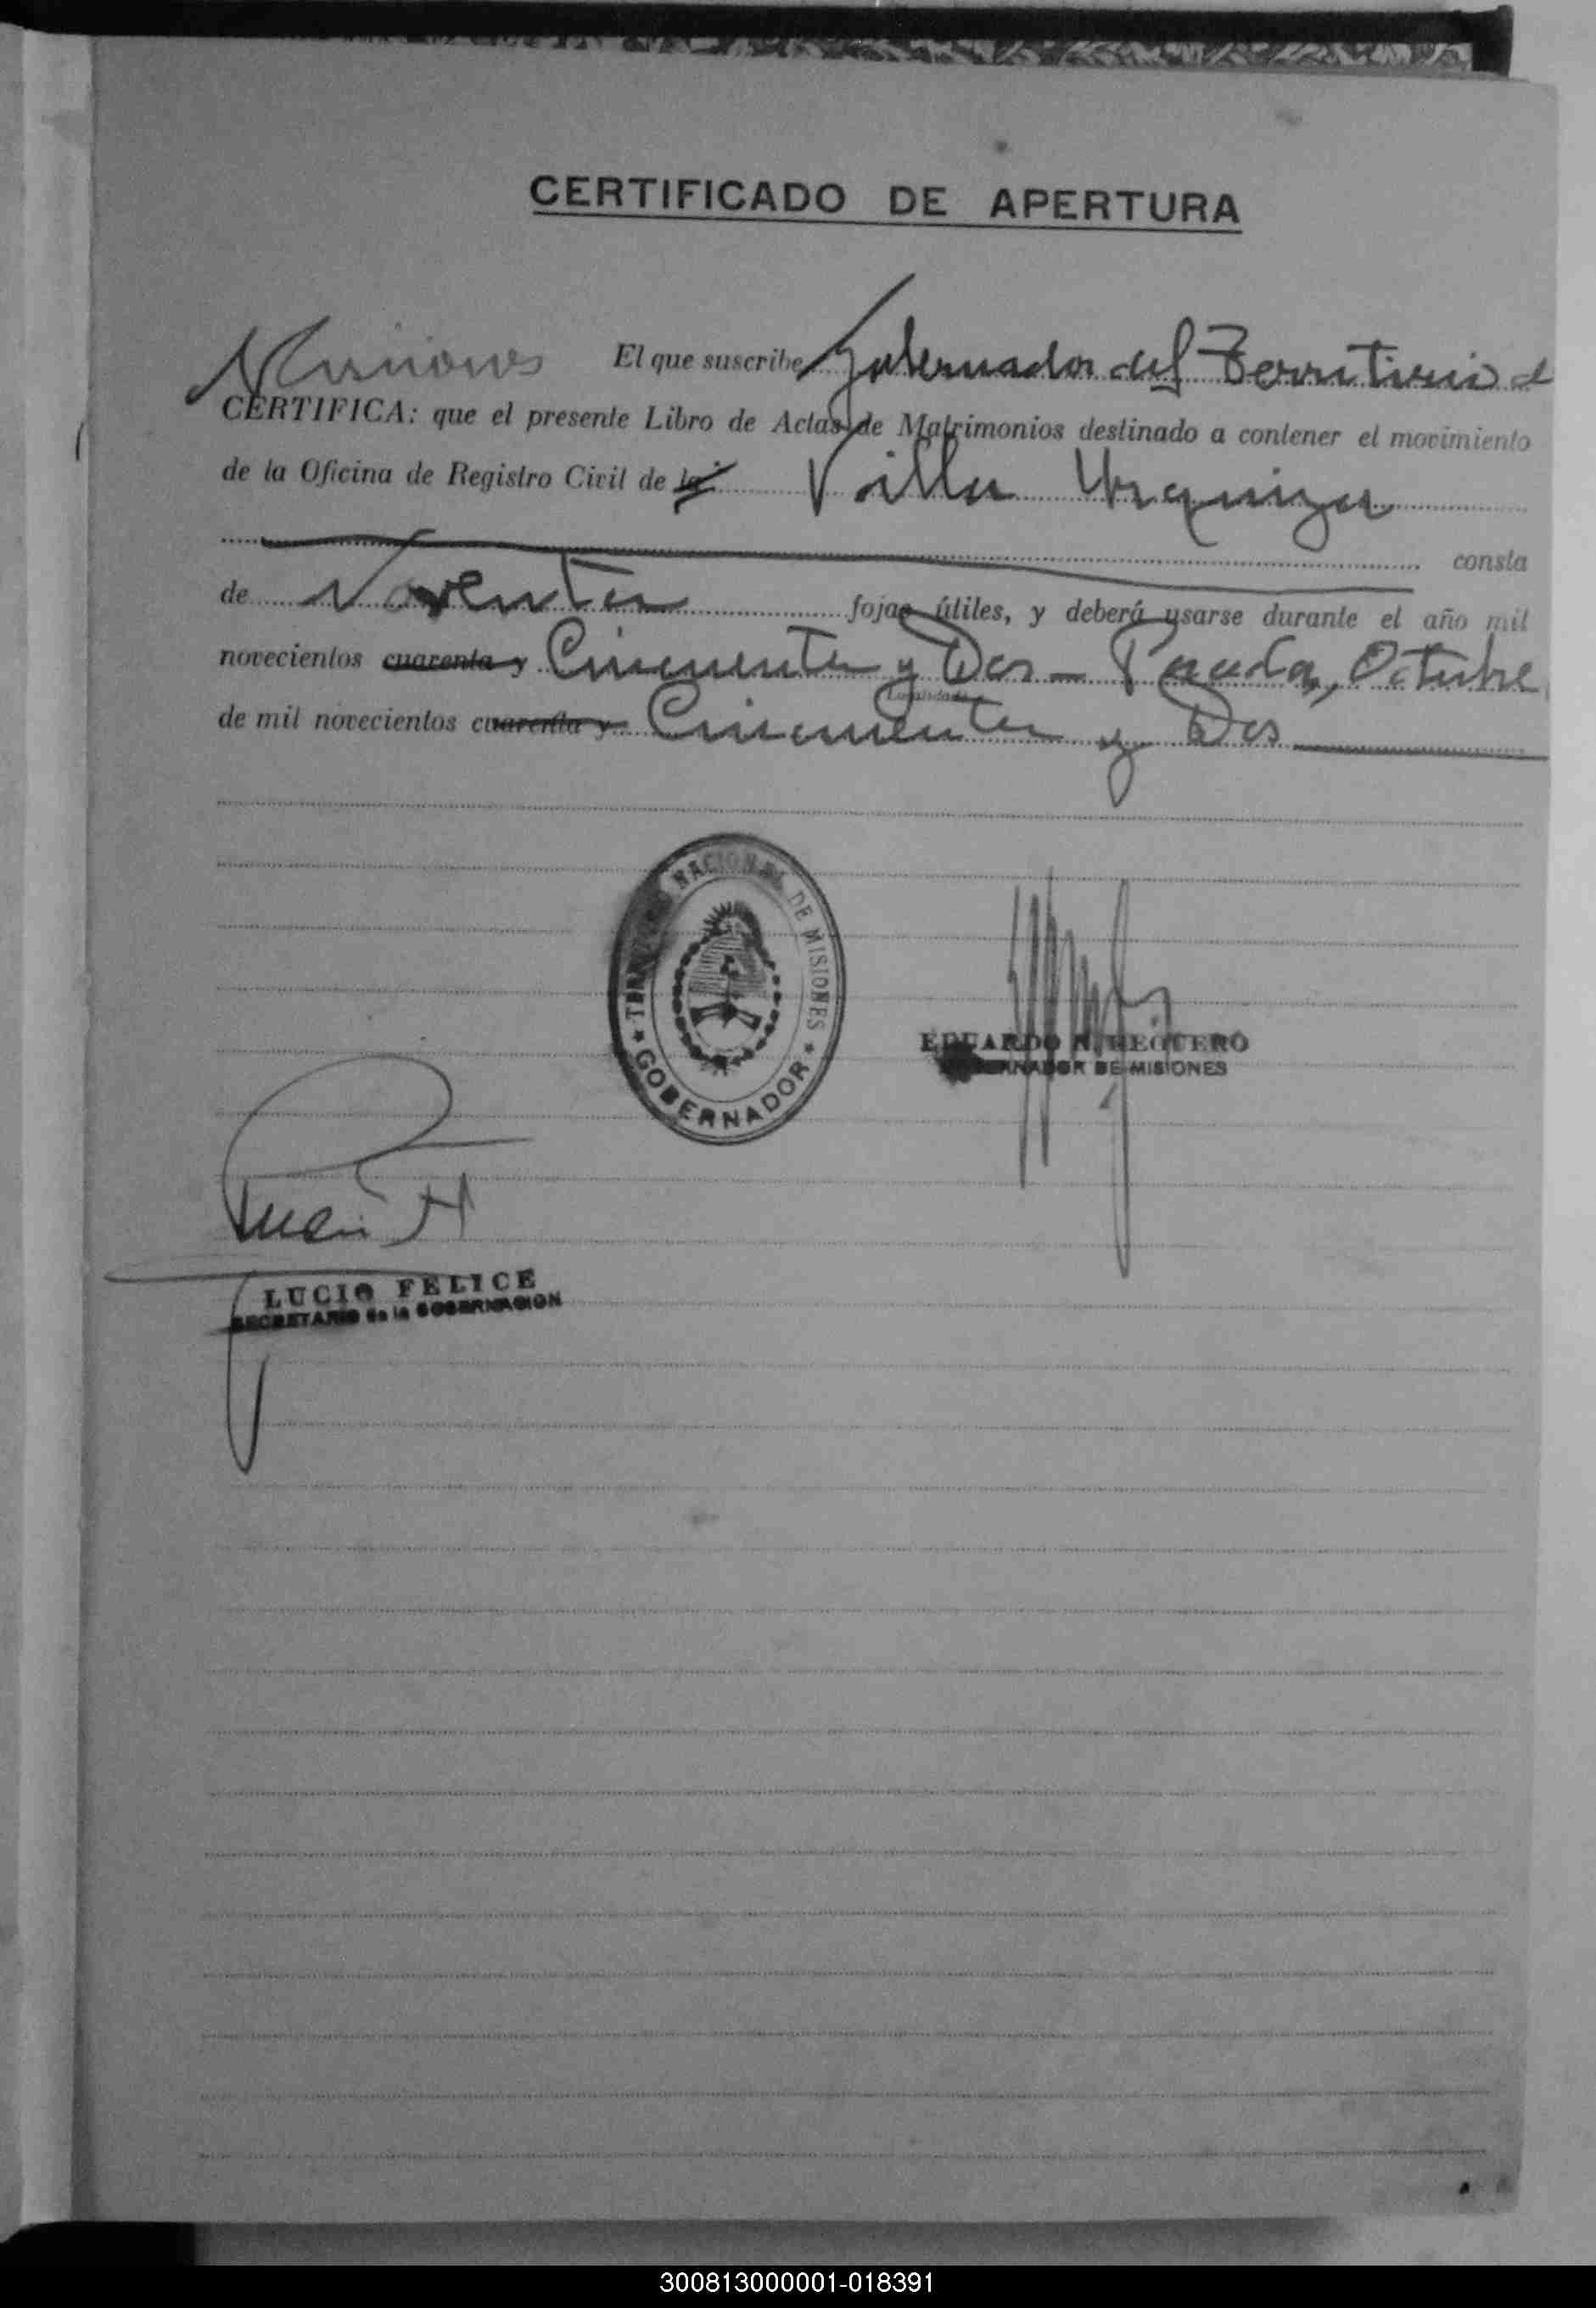 CERTIFICADO DE APERTURA
El que suscribe Gobernador del Territorio de
Misiones
CERTIFICA: que el presente Libro de Actas de Matrimonios destinado a contener el movimiento
de la Oficina de Registro Civil de la Villa Urquiza
consta
de Noventa fojas útiles, y deberá usarse durante el año mil
novecientos cuarenta y Cincuenta y Dos - Posadas, Octubre
Localidad
de mil novecientos cuarenta y Cincuenta y Dos
TERRITORIO NACIONAL DE MISIONES
★ GOBERNADOR ★
EDUARDO
GOBERNADOR DE MISIONES
LUCIO FELICE
SECRETARIO de la GOBERNACION
300813000001-018391